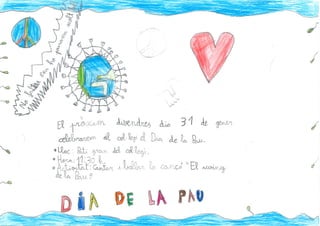 El pròxim divendres dia 31 de gener
celebrarem al col·legi el Dia de la Pau.
• Lloc: Pati gran del col·legi.
• Hora: 11:30 h.
• Activitat: Cantar i ballar la cançó "El
de la Pau."
DIA DE LA PAU